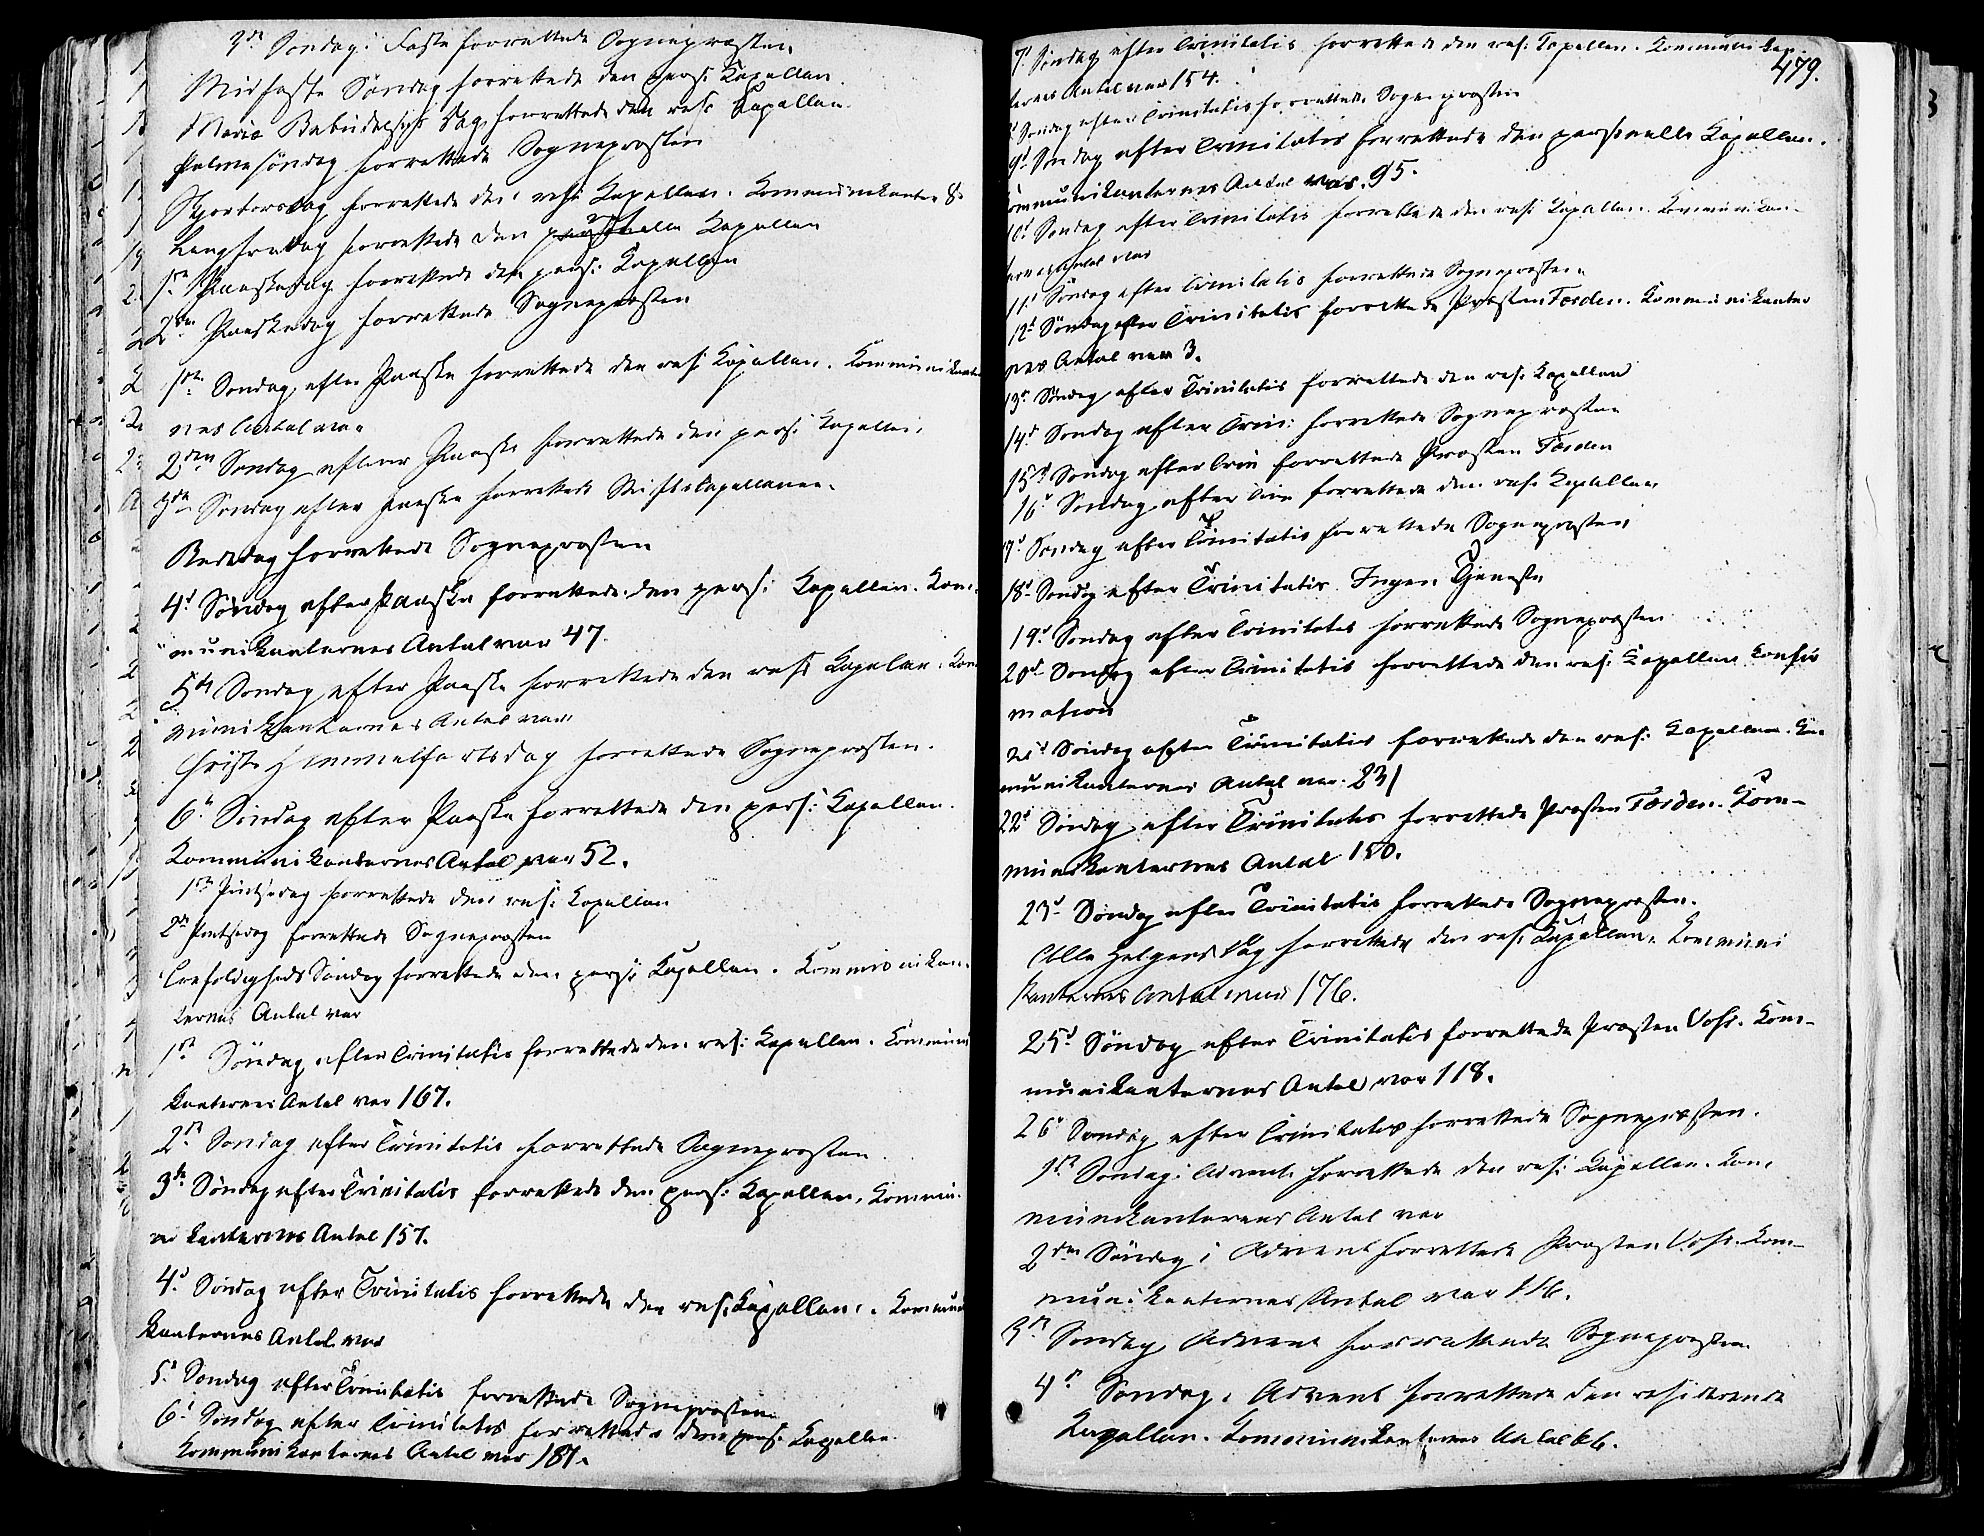 3die Søndag i Faste forrettede Sognepræsten.
Midfaste Søndag forrettede den pers: Kapellan.
Mariæ Bebudelses Dag forrettede den res: Kapellan.
Palmesøndag forrettede Sognepræsten
Skjærtorsdag forrettede den res: Kapellan. Kommunikanter 8.
Langfredag forrettede den personelle Kapellan
1ste Paaskedag forrettede den pers: Kapellan
2den Paaskedag forrettede Sognepræsten
1ste Søndag efter Paaske forrettede den res: Kapellan. Kommunikanter
nes Antal var
2den Søndag efter Paaske forrettede den pers: Kapellan.
3die Søndag efter Paaske forrettede Stiftskapellanen.
Bededag forrettede Sognepræsten
4d Søndag efter Paaske forrettede den pers: Kapellan. Kom-
munikanternes Antal var 47.
5te Søndag efter Paaske forrettede den res: Kapellan. Kom
munikanternes Antal var
Christi Himmelfartsdag forrettede Sognepræsten.
6te Søndag efter Paaske forrettede den pers: Kapellan.
Kommunikanternes Antal var 52.
1ste Pintsedag forrettede den res: Kapellan
2den Pintsedag forrettede Sognepræsten
Trefoldigheds Søndag forrettede den pers: Kapellan. Kommunikan-
ternes Antal var
1ste Søndag efter Trinitatis forrettede den res: Kapellan. Kommuni
kanternes Antal var 167.
2den Søndag efter Trinitatis forrettede Sognepræsten.
3die Søndag efter Trinitatis forrettede den pers: Kapellan. Kommu-
nikanternes Antal 157.
4d Søndag efter Trinitatis forrettede den res: Kapellan. Kommuni
kanternes Antal var
5t Søndag efter Trinitatis forrettede Sognepræsten
6t Søndag efter Trinitatis forrettede den pers: Kapellan
Kommunikanternes Antal var 181.
479.
7d Søndag efter Trinitatis forrettede den res: Capellan. Kommunikan-
ternes Antal var 154.
Søndag efter Trinitatis forrettede Sognepræsten
9d Søndag efter Trinitatis forrettede den personelle Kapellan.
Kommunikanternes Antal var 95.
10d Søndag efter Trinitatis forrettede den res: Capellan. Kommunikan-
ternes Antal var
11d Søndag efter Trinitatis forrettede Sognepræsten
12d Søndag efter Trinitatis forrettede Præsten Forden. Kommunikanter
nes Antal var 3.
13d Søndag efter Trinitatis forrettede den res: Kapellan
14d Søndag efter Trin: forrettede Sognepræsten
15d Søndag efter Trin forrettede Præsten Forden
16d Søndag efter Trin forrettede den res: Kapellan
17d Søndag efter Trinitatis forrettede Sognepræsten
18d Søndag efter Trinitatis Ingen Tjeneste
19d Søndag efter Trinitatis forrettede Sognepræsten
20d Søndag efter Trinitatis forrettede den res: Capellan Confir
mation
21d Søndag efter Trinitatis forrettede den res: Capellan. Kom
munikanternes Antal var 231
22d Søndag efter Trinitatis forrettede Præsten Forden. Kom-
munikanternes Antal 150.
23d Søndag efter Trinitatis forrettede Sognepræsten.
Alle Helgens Dag forrettede den res: Kapellan. Kommuni
kanternes Antal var 176.
25d Søndag efter Trinitatis forrettede Præsten Voss. Kom-
munikanternes Antal var 118.
26d Søndag efter Trinitatis forrettede Sognepræsten.
1ste Søndag i Advent forrettede den res: Kapellan. Kom
munikanternes Antal var
2den Søndag i Advent forrettede Præsten Voss. Kom-
munikanternes Antal var 116.
3die Søndag Advent forrettede Sognepræsten
4de Søndag i Advent forrettede den residerende
Kapellan. Kommunikanternes Antal 66.